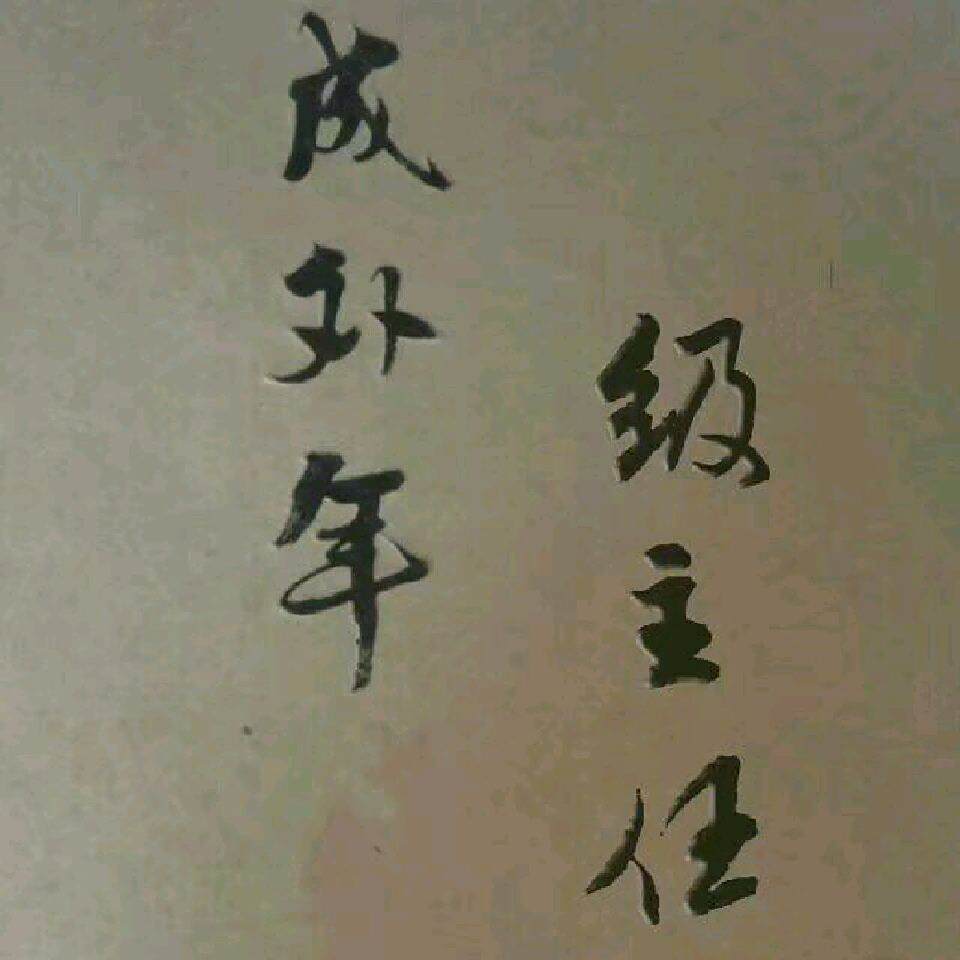 成外年
级主任